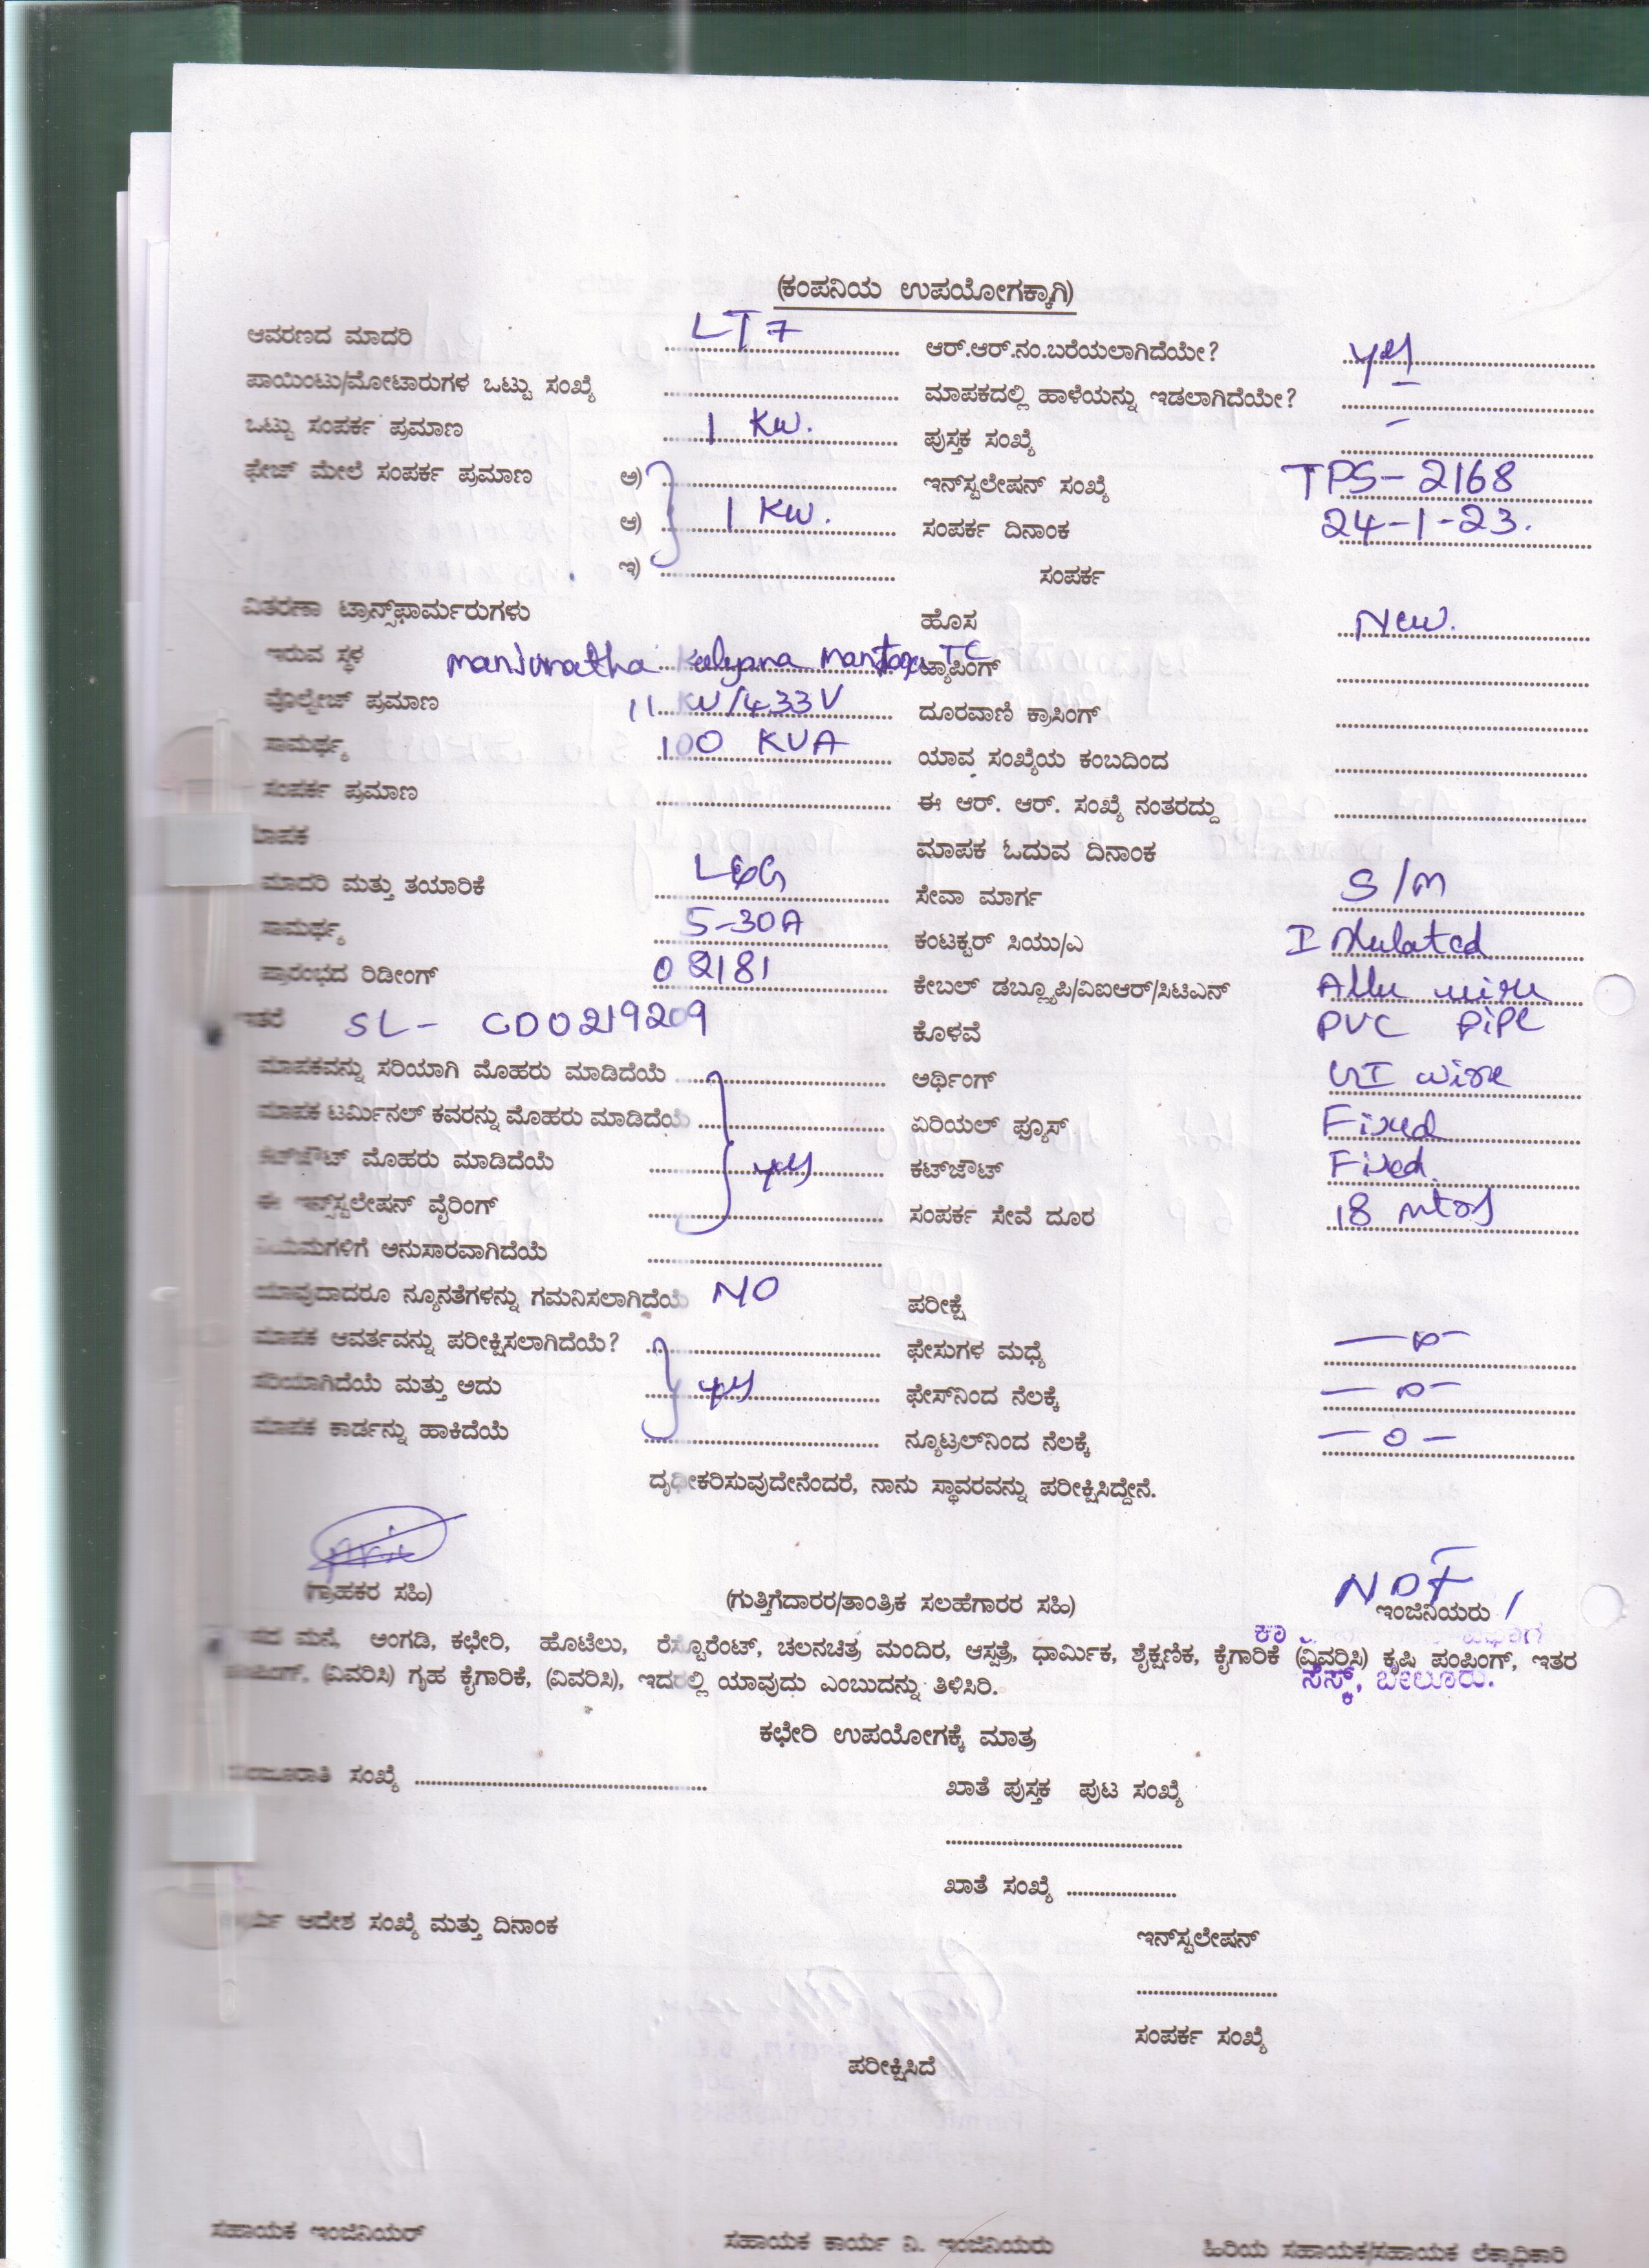 (ಕಂಪನಿಯ ಉಪಯೋಗಕ್ಕಾಗಿ)
ಆವರಣದ ಮಾದರಿ LT7 ಆರ್.ಆರ್.ನಂ.ಬರೆಯಲಾಗಿದೆಯೇ? yes
ಪಾಯಿಂಟು/ಮೋಟಾರುಗಳ ಒಟ್ಟು ಸಂಖ್ಯೆ ಮಾಪಕದಲ್ಲಿ ಹಾಳೆಯನ್ನು ಇಡಲಾಗಿದೆಯೇ? –
ಒಟ್ಟು ಸಂಪರ್ಕ ಪ್ರಮಾಣ 1 KW. ಪುಸ್ತಕ ಸಂಖ್ಯೆ –
ಫೇಜ್ ಮೇಲೆ ಸಂಪರ್ಕ ಪ್ರಮಾಣ ಅ) ಇನ್‌ಸ್ಟಲೇಷನ್ ಸಂಖ್ಯೆ TPS-2168
ಆ) 1 KW. ಸಂಪರ್ಕ ದಿನಾಂಕ 24-1-23.
ಇ) ಸಂಪರ್ಕ
ವಿತರಣಾ ಟ್ರಾನ್ಸ್‌ಫಾರ್ಮರುಗಳು ಹೊಸ New.
ಇರುವ ಸ್ಥಳ Manjunatha Kalyana TC ಟ್ಯಾಪಿಂಗ್
ವೊಲ್ಟೇಜ್ ಪ್ರಮಾಣ 11 KV/433V ದೂರವಾಣಿ ಕ್ರಾಸಿಂಗ್
ಸಾಮರ್ಥ್ಯ 100 KVA ಯಾವ ಸಂಖ್ಯೆಯ ಕಂಬದಿಂದ
ಸಂಪರ್ಕ ಪ್ರಮಾಣ ಈ ಆರ್. ಆರ್. ಸಂಖ್ಯೆ ನಂತರದ್ದು
ಮಾಪಕ ಮಾಪಕ ಓದುವ ದಿನಾಂಕ
ಮಾದರಿ ಮತ್ತು ತಯಾರಿಕೆ L&G ಸೇವಾ ಮಾರ್ಗ S/M
ಸಾಮರ್ಥ್ಯ 5-30A ಕಂಟಕ್ಟರ್ ಸಿಯು/ಎ Insulated
ಪ್ರಾರಂಭದ ರಿಡೀಂಗ್ 02181 ಕೇಬಲ್ ಡಬ್ಲ್ಯೂಪಿ/ವಿಐಆರ್/ಸಿಟಿಎನ್ Allu wire
ಇತರೆ SL- CD0219209 ಕೊಳವೆ PVC Pipe
ಮಾಪಕವನ್ನು ಸರಿಯಾಗಿ ಮೊಹರು ಮಾಡಿದೆಯೆ ಅರ್ಥಿಂಗ್ GI wire
ಮಾಪಕ ಟರ್ಮಿನಲ್ ಕವರನ್ನು ಮೊಹರು ಮಾಡಿದೆಯೆ ಏರಿಯಲ್ ಫ್ಯೂಸ್ Fixed
ಕಟ್‌ಔಟ್ ಮೊಹರು ಮಾಡಿದೆಯೆ yes ಕಟ್‌ಔಟ್ Fixed
ಈ ಇನ್ಸ್‌ಸ್ಟಲೇಷನ್ ವೈರಿಂಗ್ ಸಂಪರ್ಕ ಸೇವೆ ದೂರ 18 mtrs
ನಿಯಮಗಳಿಗೆ ಅನುಸಾರವಾಗಿದೆಯೆ
ಯಾವುದಾದರೂ ನ್ಯೂನತೆಗಳನ್ನು ಗಮನಿಸಲಾಗಿದೆಯೆ NO ಪರೀಕ್ಷೆ
ಮಾಪಕ ಆವರ್ತವನ್ನು ಪರೀಕ್ಷಿಸಲಾಗಿದೆಯೆ? ಫೇಸುಗಳ ಮಧ್ಯೆ –0–
ಸರಿಯಾಗಿದೆಯೆ ಮತ್ತು ಅದು yes ಫೇಸ್‌ನಿಂದ ನೆಲಕ್ಕೆ –0–
ಮಾಪಕ ಕಾರ್ಡನ್ನು ಹಾಕಿದೆಯೆ ನ್ಯೂಟ್ರಲ್‌ನಿಂದ ನೆಲಕ್ಕೆ –0–
ದೃಢೀಕರಿಸುವುದೇನೆಂದರೆ, ನಾನು ಸ್ಥಾವರವನ್ನು ಪರೀಕ್ಷಿಸಿದ್ದೇನೆ.
(ಗ್ರಾಹಕರ ಸಹಿ) (ಗುತ್ತಿಗೆದಾರರ/ತಾಂತ್ರಿಕ ಸಲಹೆಗಾರರ ಸಹಿ) ಇಂಜಿನಿಯರು
ಮನೆ, ಅಂಗಡಿ, ಕಛೇರಿ, ಹೊಟೆಲು, ರೆಸ್ಟೊರೆಂಟ್, ಚಲನಚಿತ್ರ ಮಂದಿರ, ಆಸ್ಪತ್ರೆ, ಧಾರ್ಮಿಕ, ಶೈಕ್ಷಣಿಕ, ಕೈಗಾರಿಕೆ (ವಿವರಿಸಿ) ಕೃಷಿ ಪಂಪಿಂಗ್, ಇತರ
ಪಂಪಿಂಗ್, (ವಿವರಿಸಿ) ಗೃಹ ಕೈಗಾರಿಕೆ, (ವಿವರಿಸಿ), ಇದರಲ್ಲಿ ಯಾವುದು ಎಂಬುದನ್ನು ತಿಳಿಸಿರಿ. ಸೆಸ್ಕ್, ಬೇಲೂರು.
ಕಛೇರಿ ಉಪಯೋಗಕ್ಕೆ ಮಾತ್ರ
ಮಂಜೂರಾತಿ ಸಂಖ್ಯೆ ಖಾತೆ ಪುಸ್ತಕ ಪುಟ ಸಂಖ್ಯೆ
ಖಾತೆ ಸಂಖ್ಯೆ
ಆದೇಶ ಸಂಖ್ಯೆ ಮತ್ತು ದಿನಾಂಕ
ಇನ್‌ಸ್ಟಲೇಷನ್
ಸಂಪರ್ಕ ಸಂಖ್ಯೆ
ಪರೀಕ್ಷಿಸಿದೆ
ಸಹಾಯಕ ಇಂಜಿನಿಯರ್ ಸಹಾಯಕ ಕಾರ್ಯ ನಿ. ಇಂಜಿನಿಯರು ಹಿರಿಯ ಸಹಾಯಕ/ಸಹಾಯಕ ಲೆಕ್ಕಾಧಿಕಾರಿ